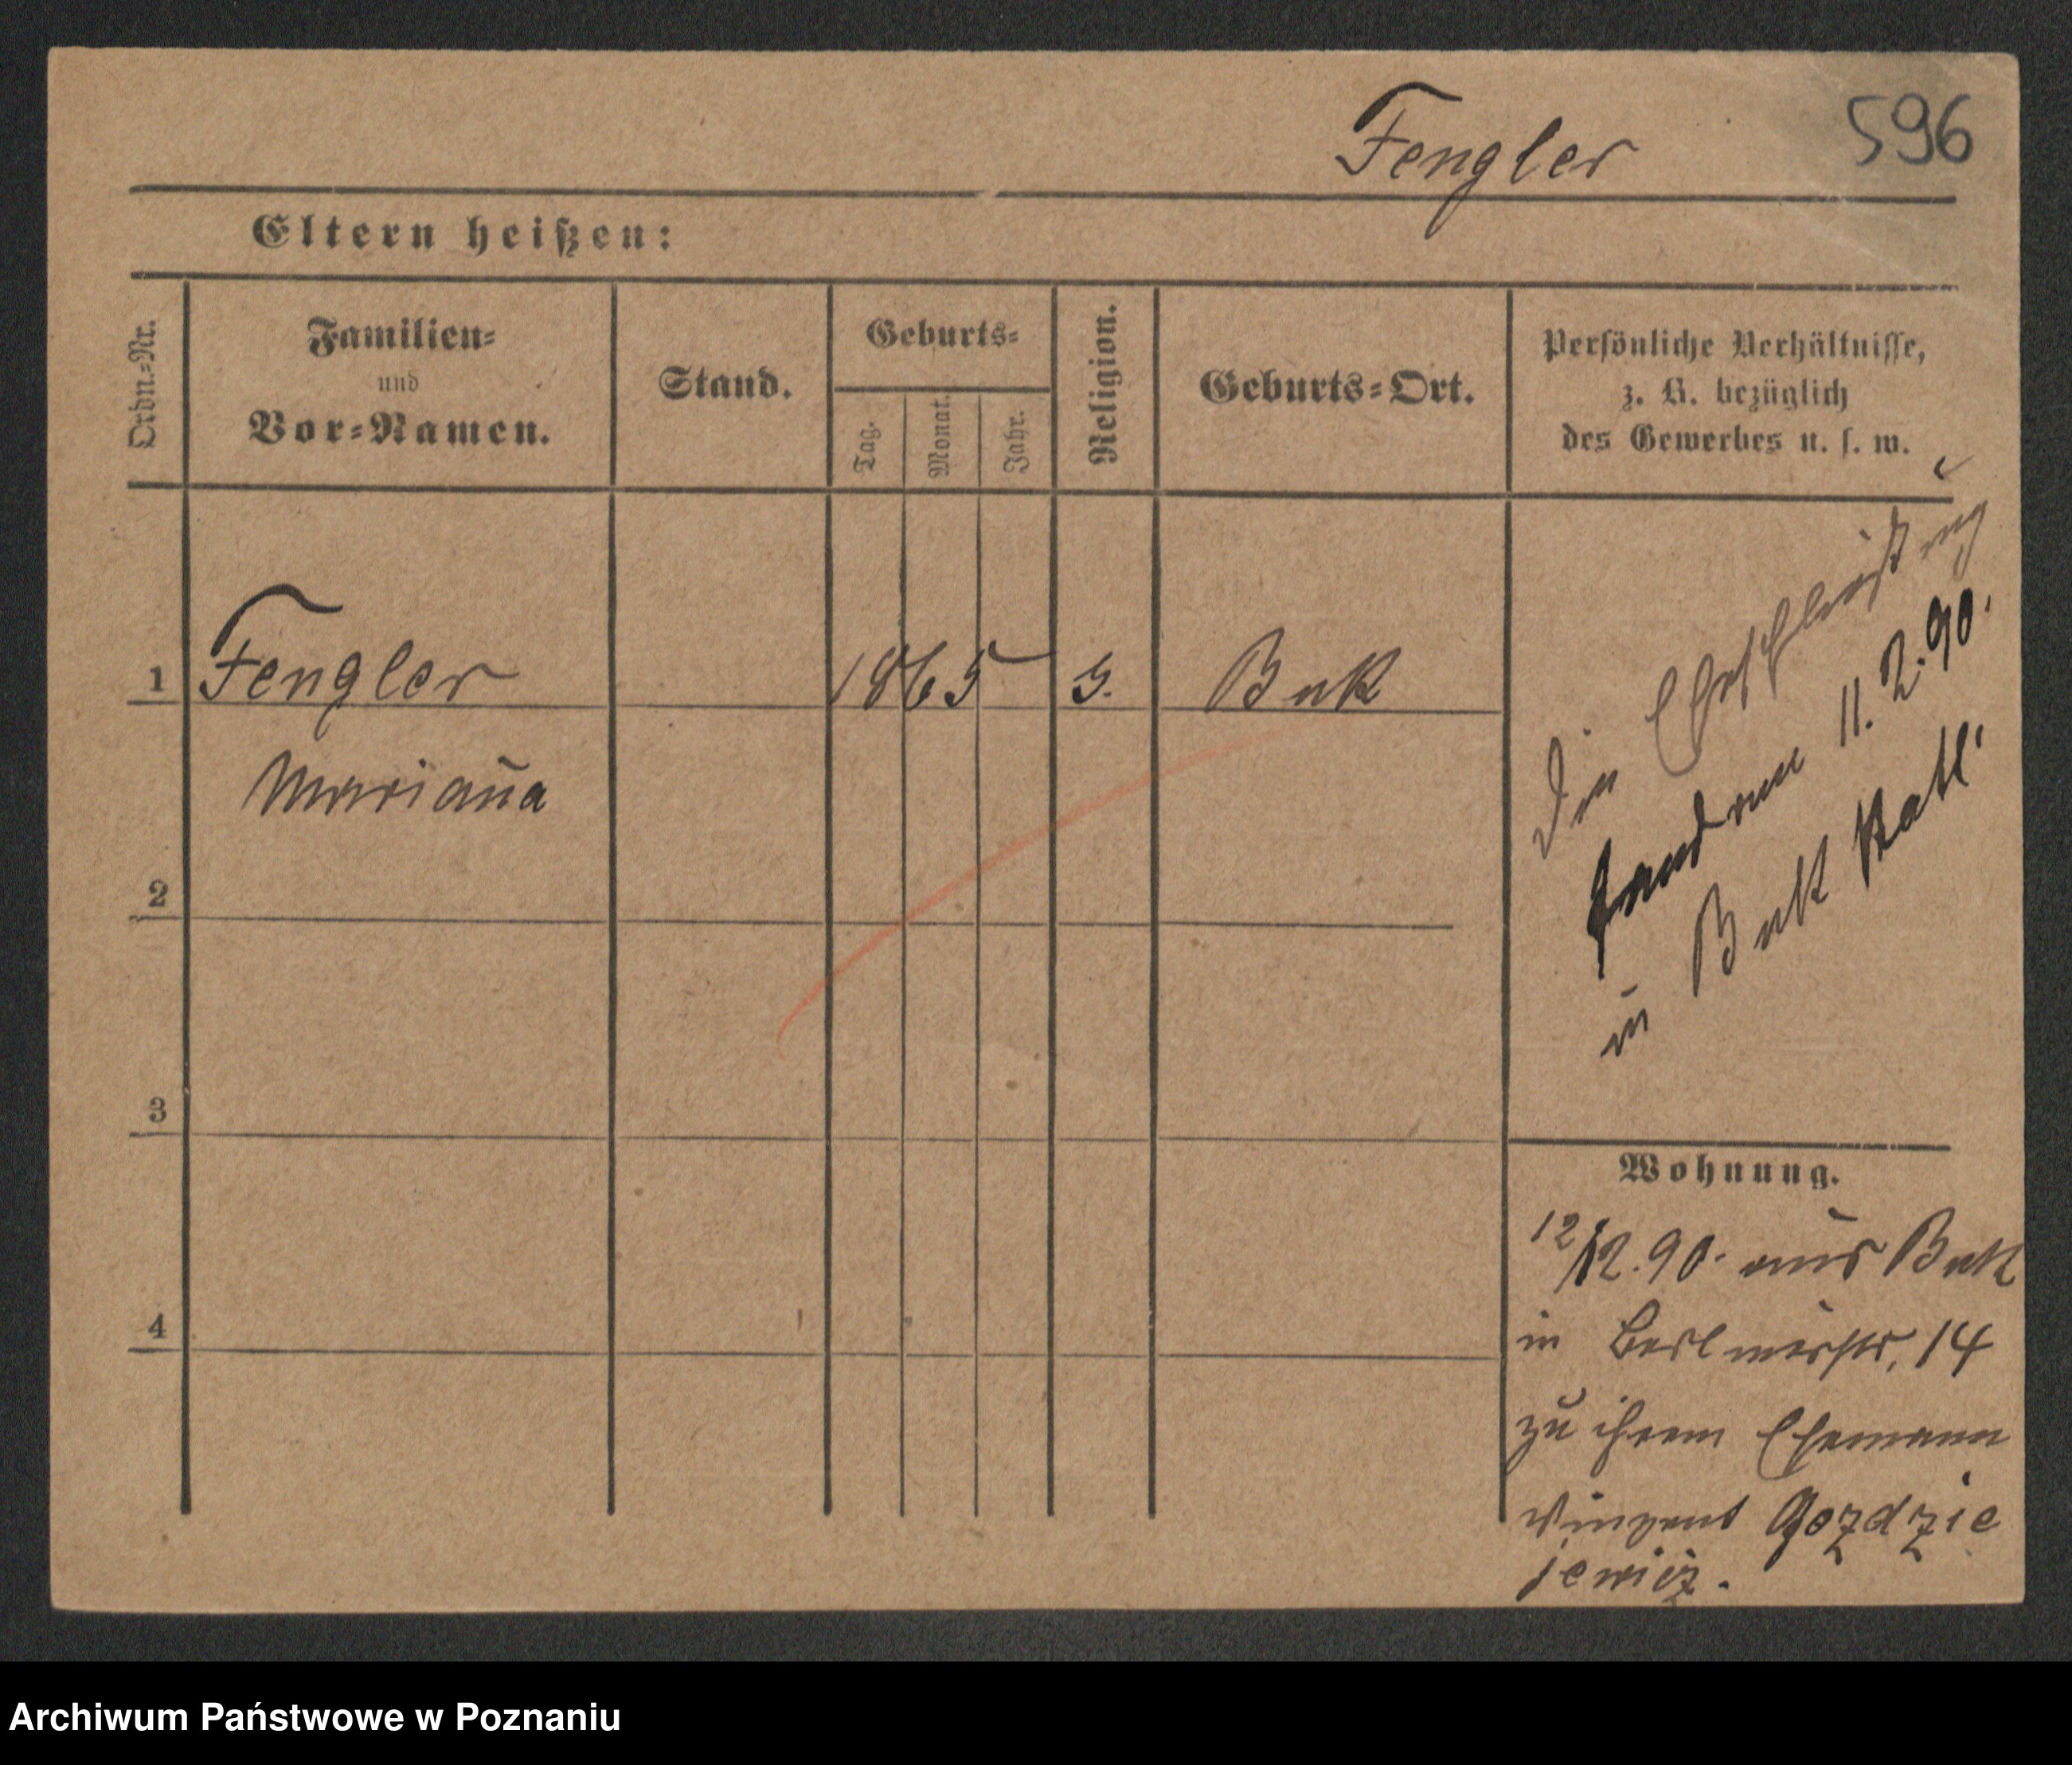 Fengler 596
Eltern heißen:
Ordn.-Nr. Familien- und Vor-Namen. Stand. Geburts- Tag. Monat. Jahr. Religion. Geburts-Ort. Persönliche Verhältnisse, z. B. bezüglich des Gewerbes u. s. w.
1 Fengler 1865 Buk
Mariana
2
3
4
Die Eheschließung
fand am 11. 2. 90.
in Buk statt.
Wohnung.
12/12. 90. aus Buk
in 14
zu ihrem Ehemann
Vinzent Gozdzie
jewicz.
Archiwum Państwowe w Poznaniu